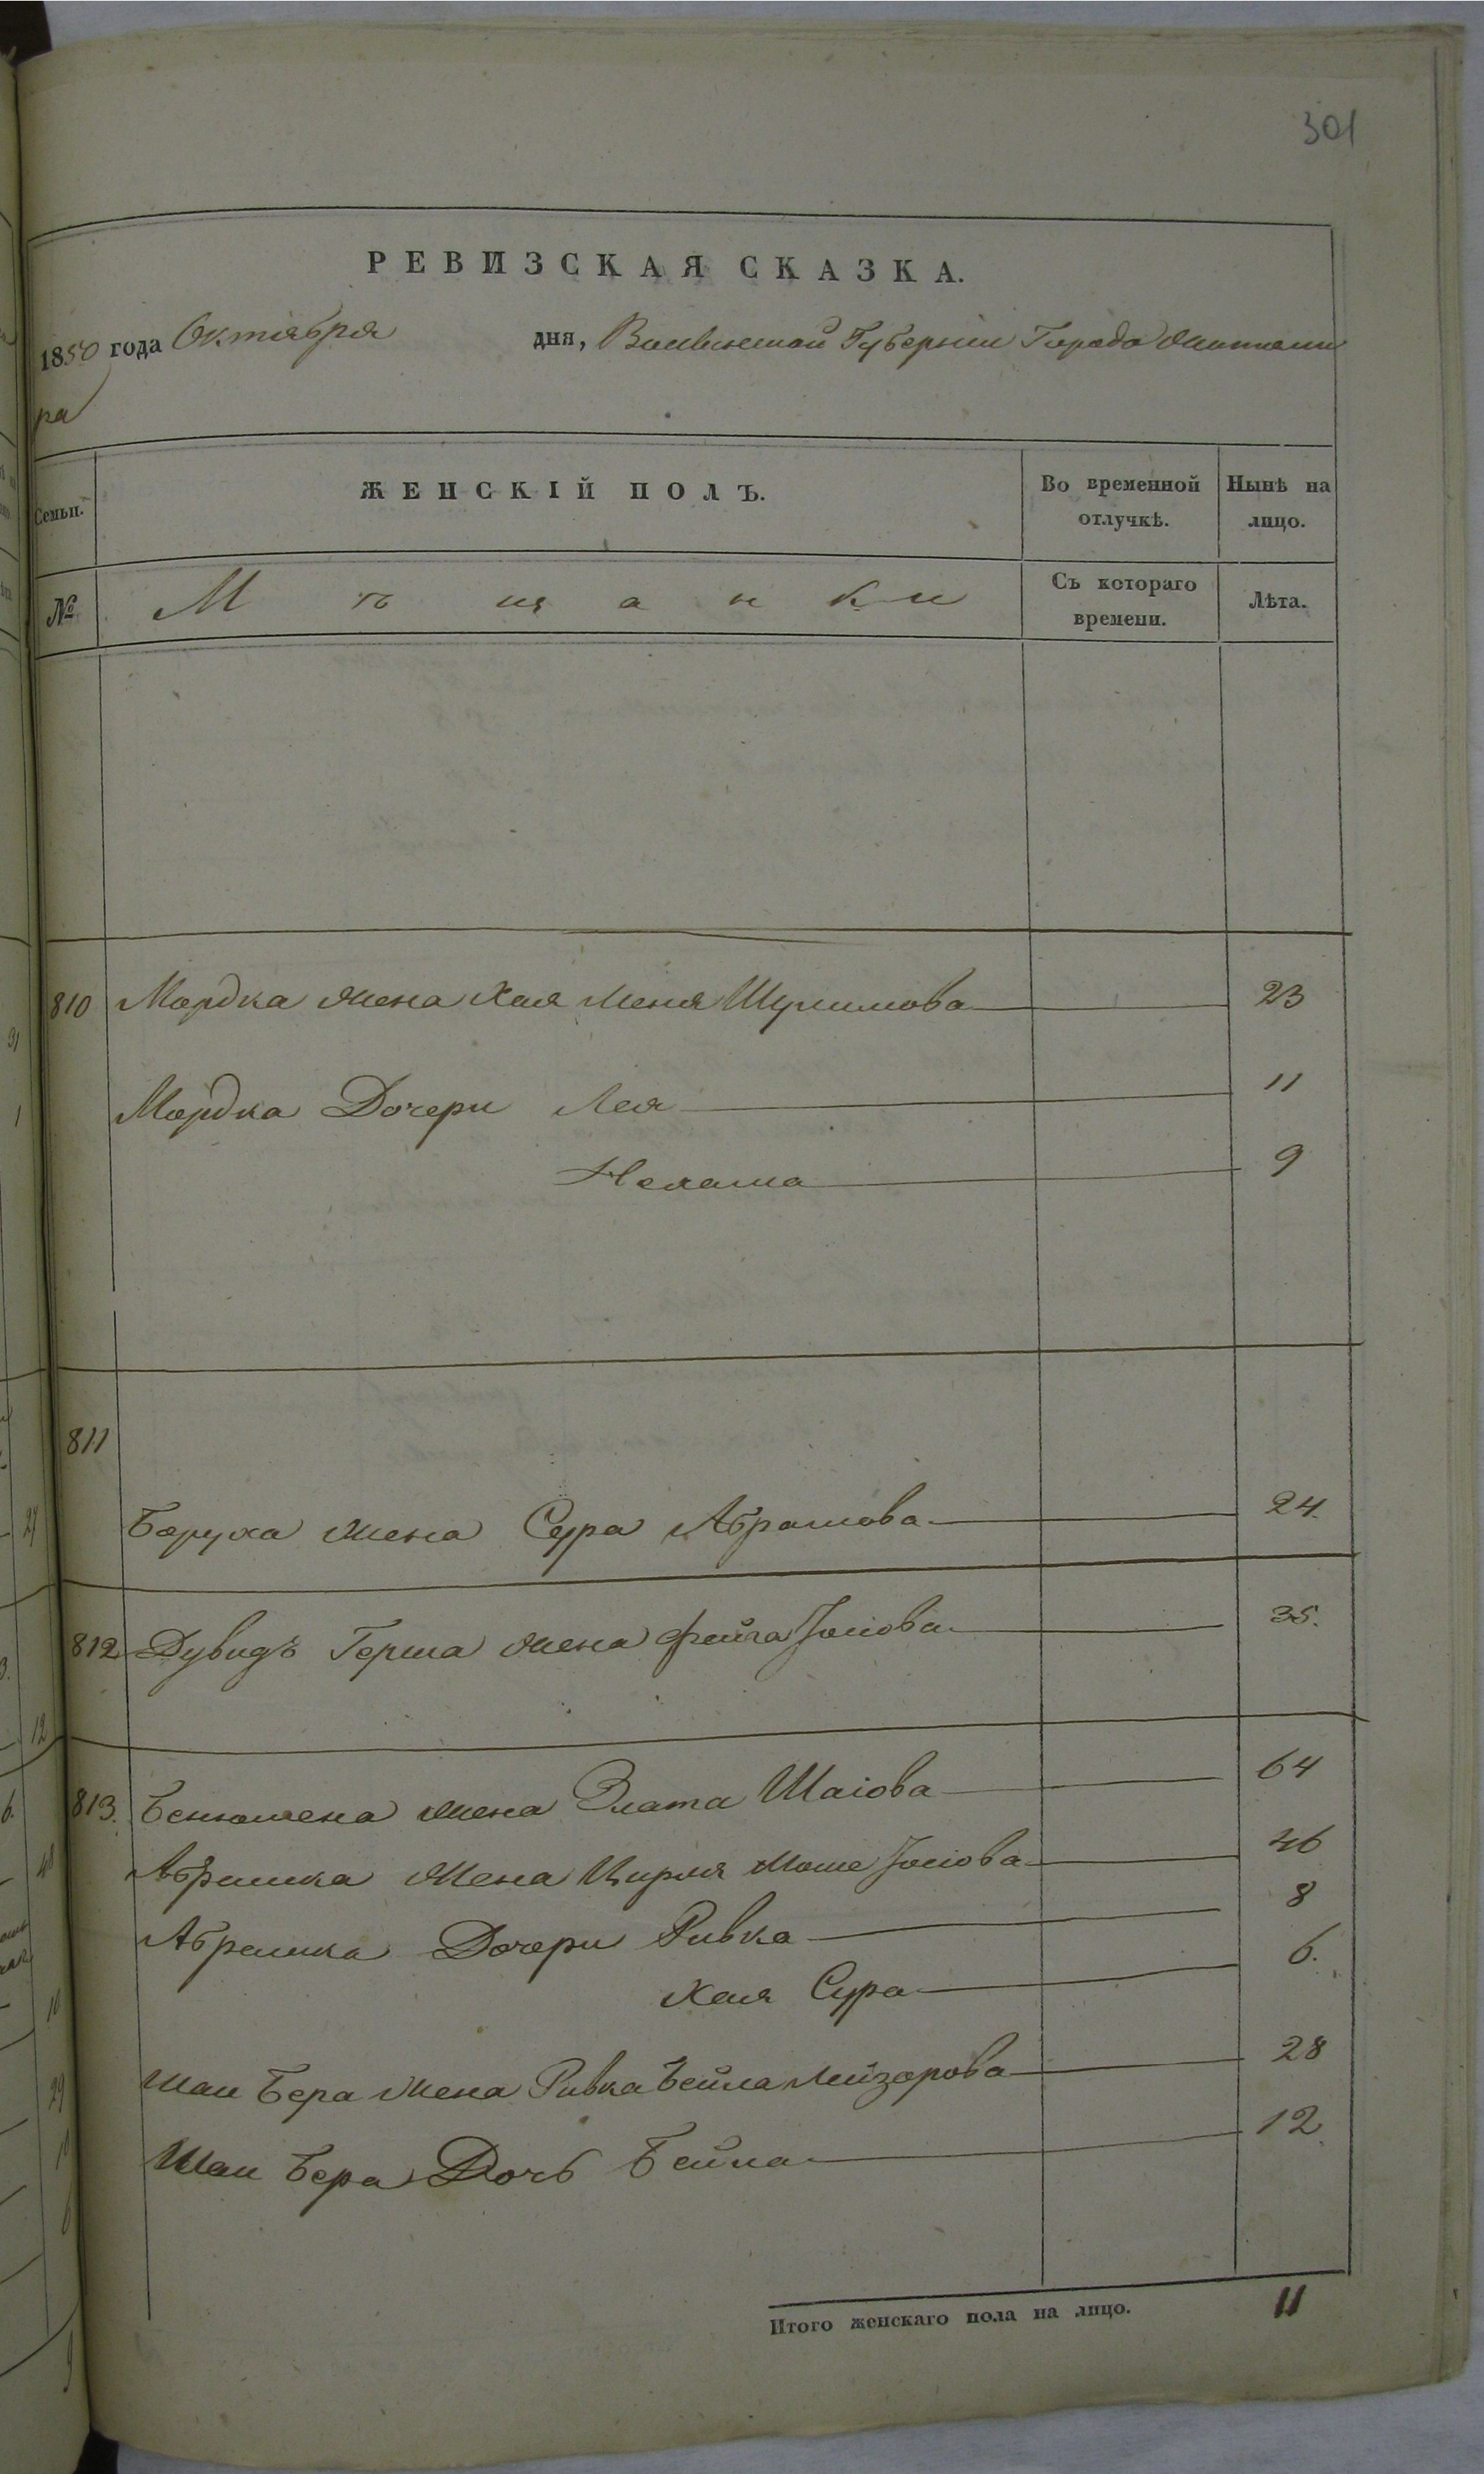 301
РЕВИЗСКАЯ СКАЗКА.
1850 года Октября дня, Волынской Губернии Города Житоми
ра
Семьи. ЖЕНСКІЙ ПОЛЪ. Во временной отлучкѣ. Нынѣ на лицо.
№ Мѣщанки Съ котораго времени. Лѣта.
810 Мордка жена Хая Меня Шулимова 23
Мордка Дочери Лея 11
Нехама 9
811
Баруха жена Сура Абрамова 24
812 Дувидъ Герша жена Фейга Іосіова 35.
813. Беньомена жена Злата Шаіова 64
Абрамка жена Цирля Моше Іосіова 46
Абрамка Дочери Ривка 8
Хая Сура 6.
Шаи Бера жена Ривка Бейла Лейзорова 28
Шаи Бера Дочь Бейла 12
Итого женскаго пола на лицо. 11